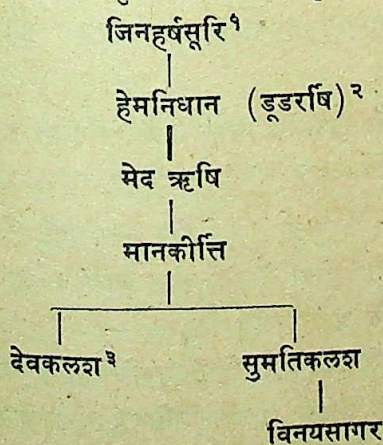 जिनहर्षसूरि१
हेमनिधान (डूडर्षि)२
मेद ऋषि
मानकीर्त्ति
देवकलश३ सुमतिकलश
विनयसागर